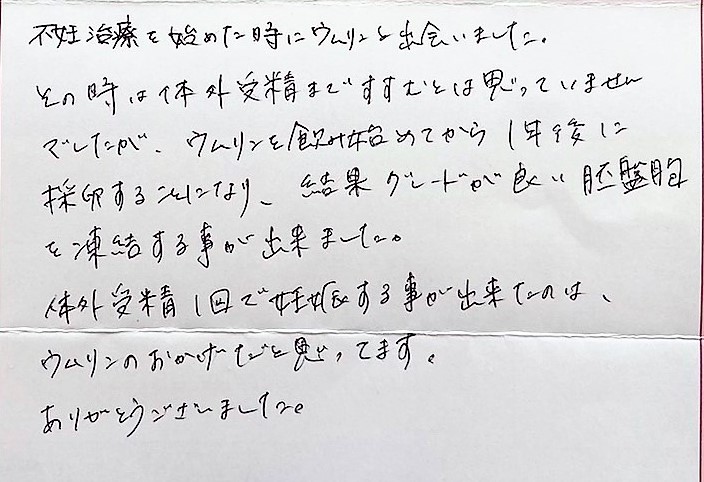 不妊治療を始めた時にウムリンと出会いました。
その時は体外受精まですすむとは思っていません
でしたが、ウムリンを飲み始めてから1年後に
採卵することになり、結果グレードが良い胚盤胞
を凍結する事が出来ました。
体外受精1回で妊娠する事が出来たのは、
ウムリンのおかげだと思ってます。
ありがとうございました。